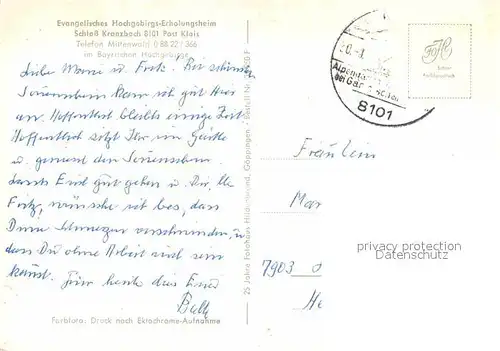 Evangelisches Hochgebirgs-Erholungsheim
Schloß Kranzbach 8101 Post Klais
Telefon Mittenwald 0 88 22 / 366
im Bayrischen Hochgebirge
Liebe u. Fritz! Bei schönsten
Sonnenschein kam ich gut hier
an. Hoffentlich bleibts einige Zeit.
Hoffentlich sitzt Ihr im Garten
u. genießt den Sonnenschein.
Euch gut gehen u. Dir, lb.
Fritz, wünsche ich bes., dass
Deine Schmerzen verschwinden, u.
dass Du ohne Arbeit sein
kannst. Für heute dies Eure
Farbfoto: Druck nach Ektachrome-Aufnahme
25 Jahre Fotohaus Hildenbrand, Göppingen
20.-
Alpen
bei Gar
8101
FoHi
Fräulein
Mar
7903
He
privacy protection
Datenschutz